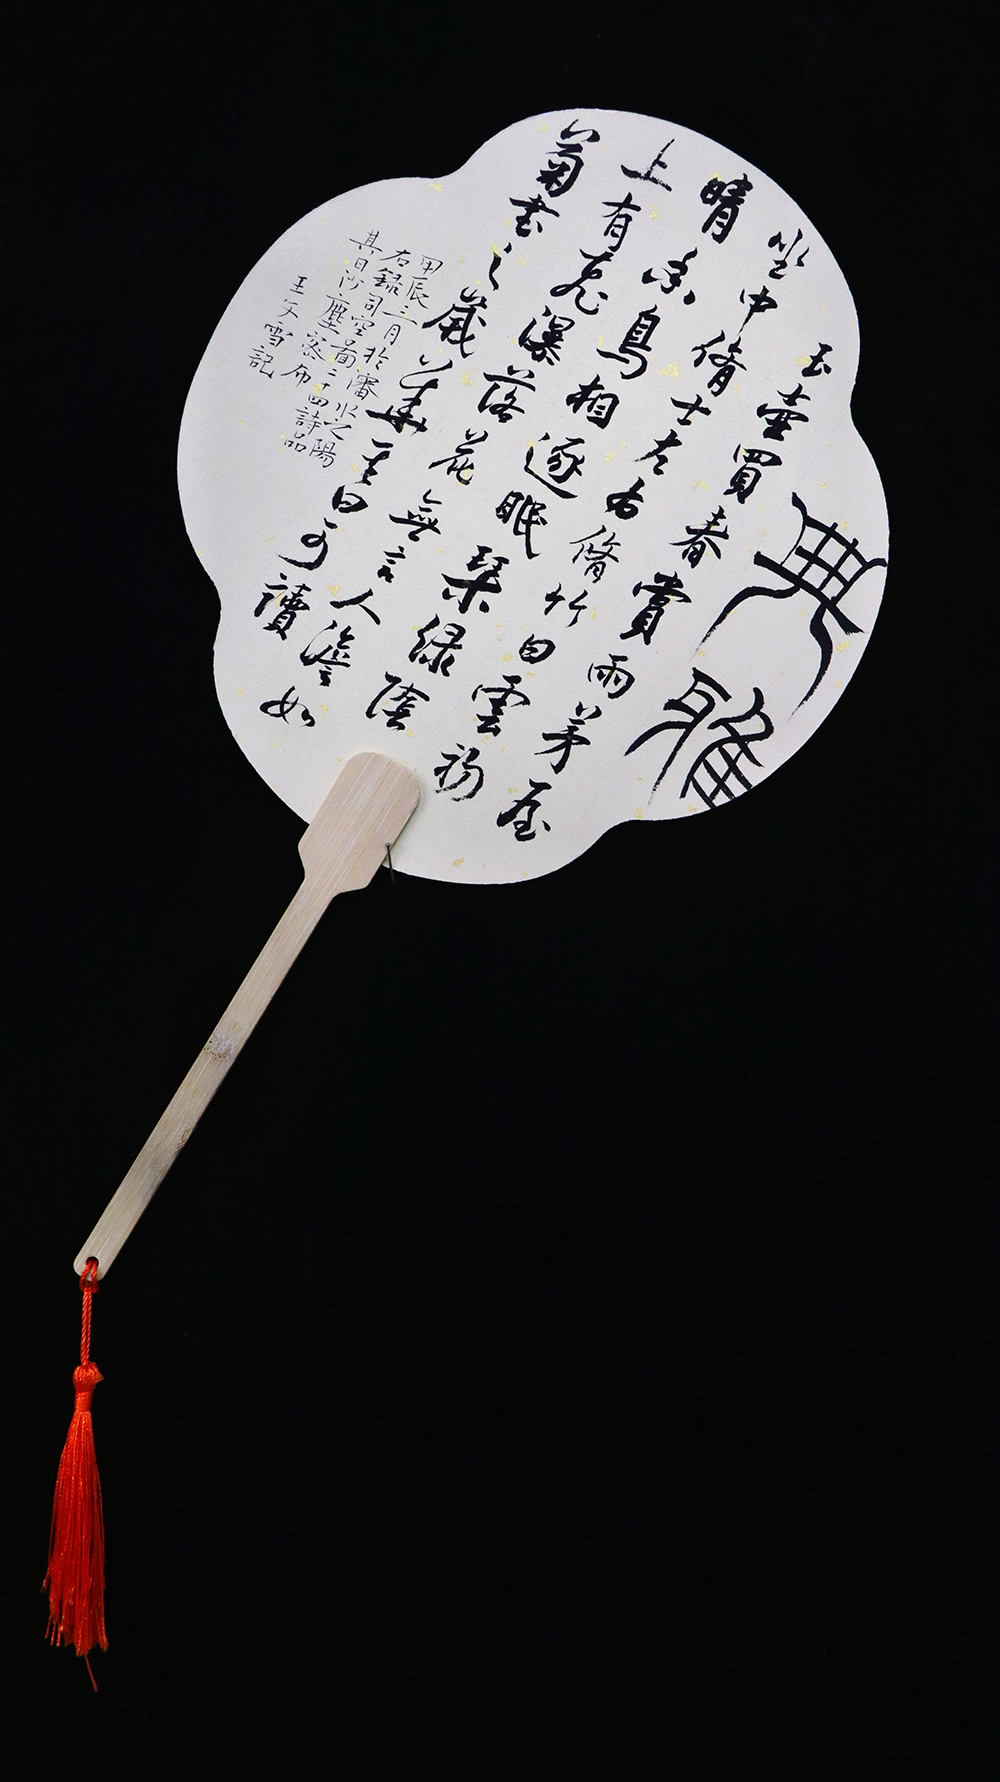 典雅
玉壺買春賞雨茅屋
坐中脩士左右脩竹白雲初
晴幽鳥相逐眠琴綠陰
上有飛瀑落花無言人澹如
菊書之歲華其曰可讀
甲辰三月於瀋水之陽
右錄司空圖二十四詩品
其日沙塵密布
王文雪記